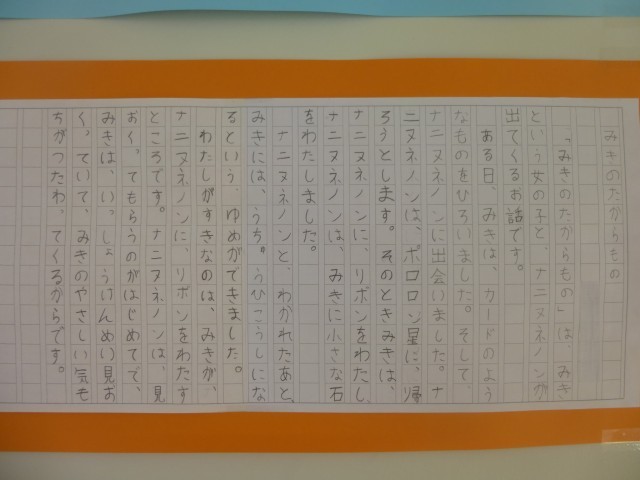 みきのたからもの
「みきのたからもの」は、みき
という女の子と、ナニヌネノンが
出てくるお話です。
ある日、みきは、カードのよう
なものをひろいました。そして、
ナニヌネノンに出会いました。ナ
ニヌネノンは、ポロロン星に、帰
ろうとします。そのときみきは、
ナニヌネノンに、リボンをわたし、
ナニヌネノンは、みきに小さな石
をわたしました。
ナニヌネノンと、わかれたあと、
みきには、うち。うひこうしにな
るという、ゆめができました。
わたしがすきなのは、みきが、
ナニヌネノンに、リボンをわたす
ところです。ナニヌネノンは、見
おく。てもらうのがはじめてで、
みきは、い。しょうけんめい見お
く。ていて、みきのやさしい気も
ちがつたわ。てくるからです。